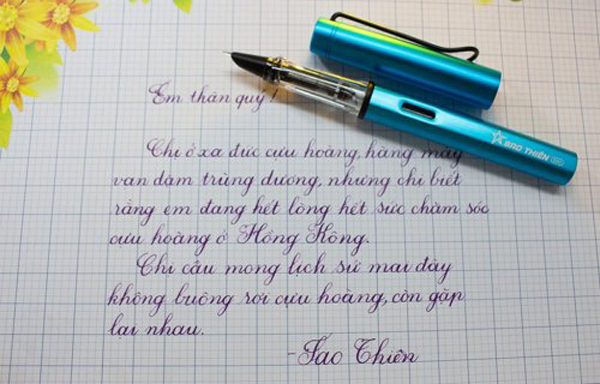 Em thân quý!
Chị ở xa đức cựu hoàng, hàng mấy
vạn dặm trùng dương, nhưng chị biết
rằng em đang hết lòng hết sức chăm sóc
cựu hoàng ở Hồng Kông.
Chị cầu mong lịch sử mai đây
không buông rơi cựu hoàng, còn gặp
lại nhau.
-Sao Thiên
SAO THIÊN